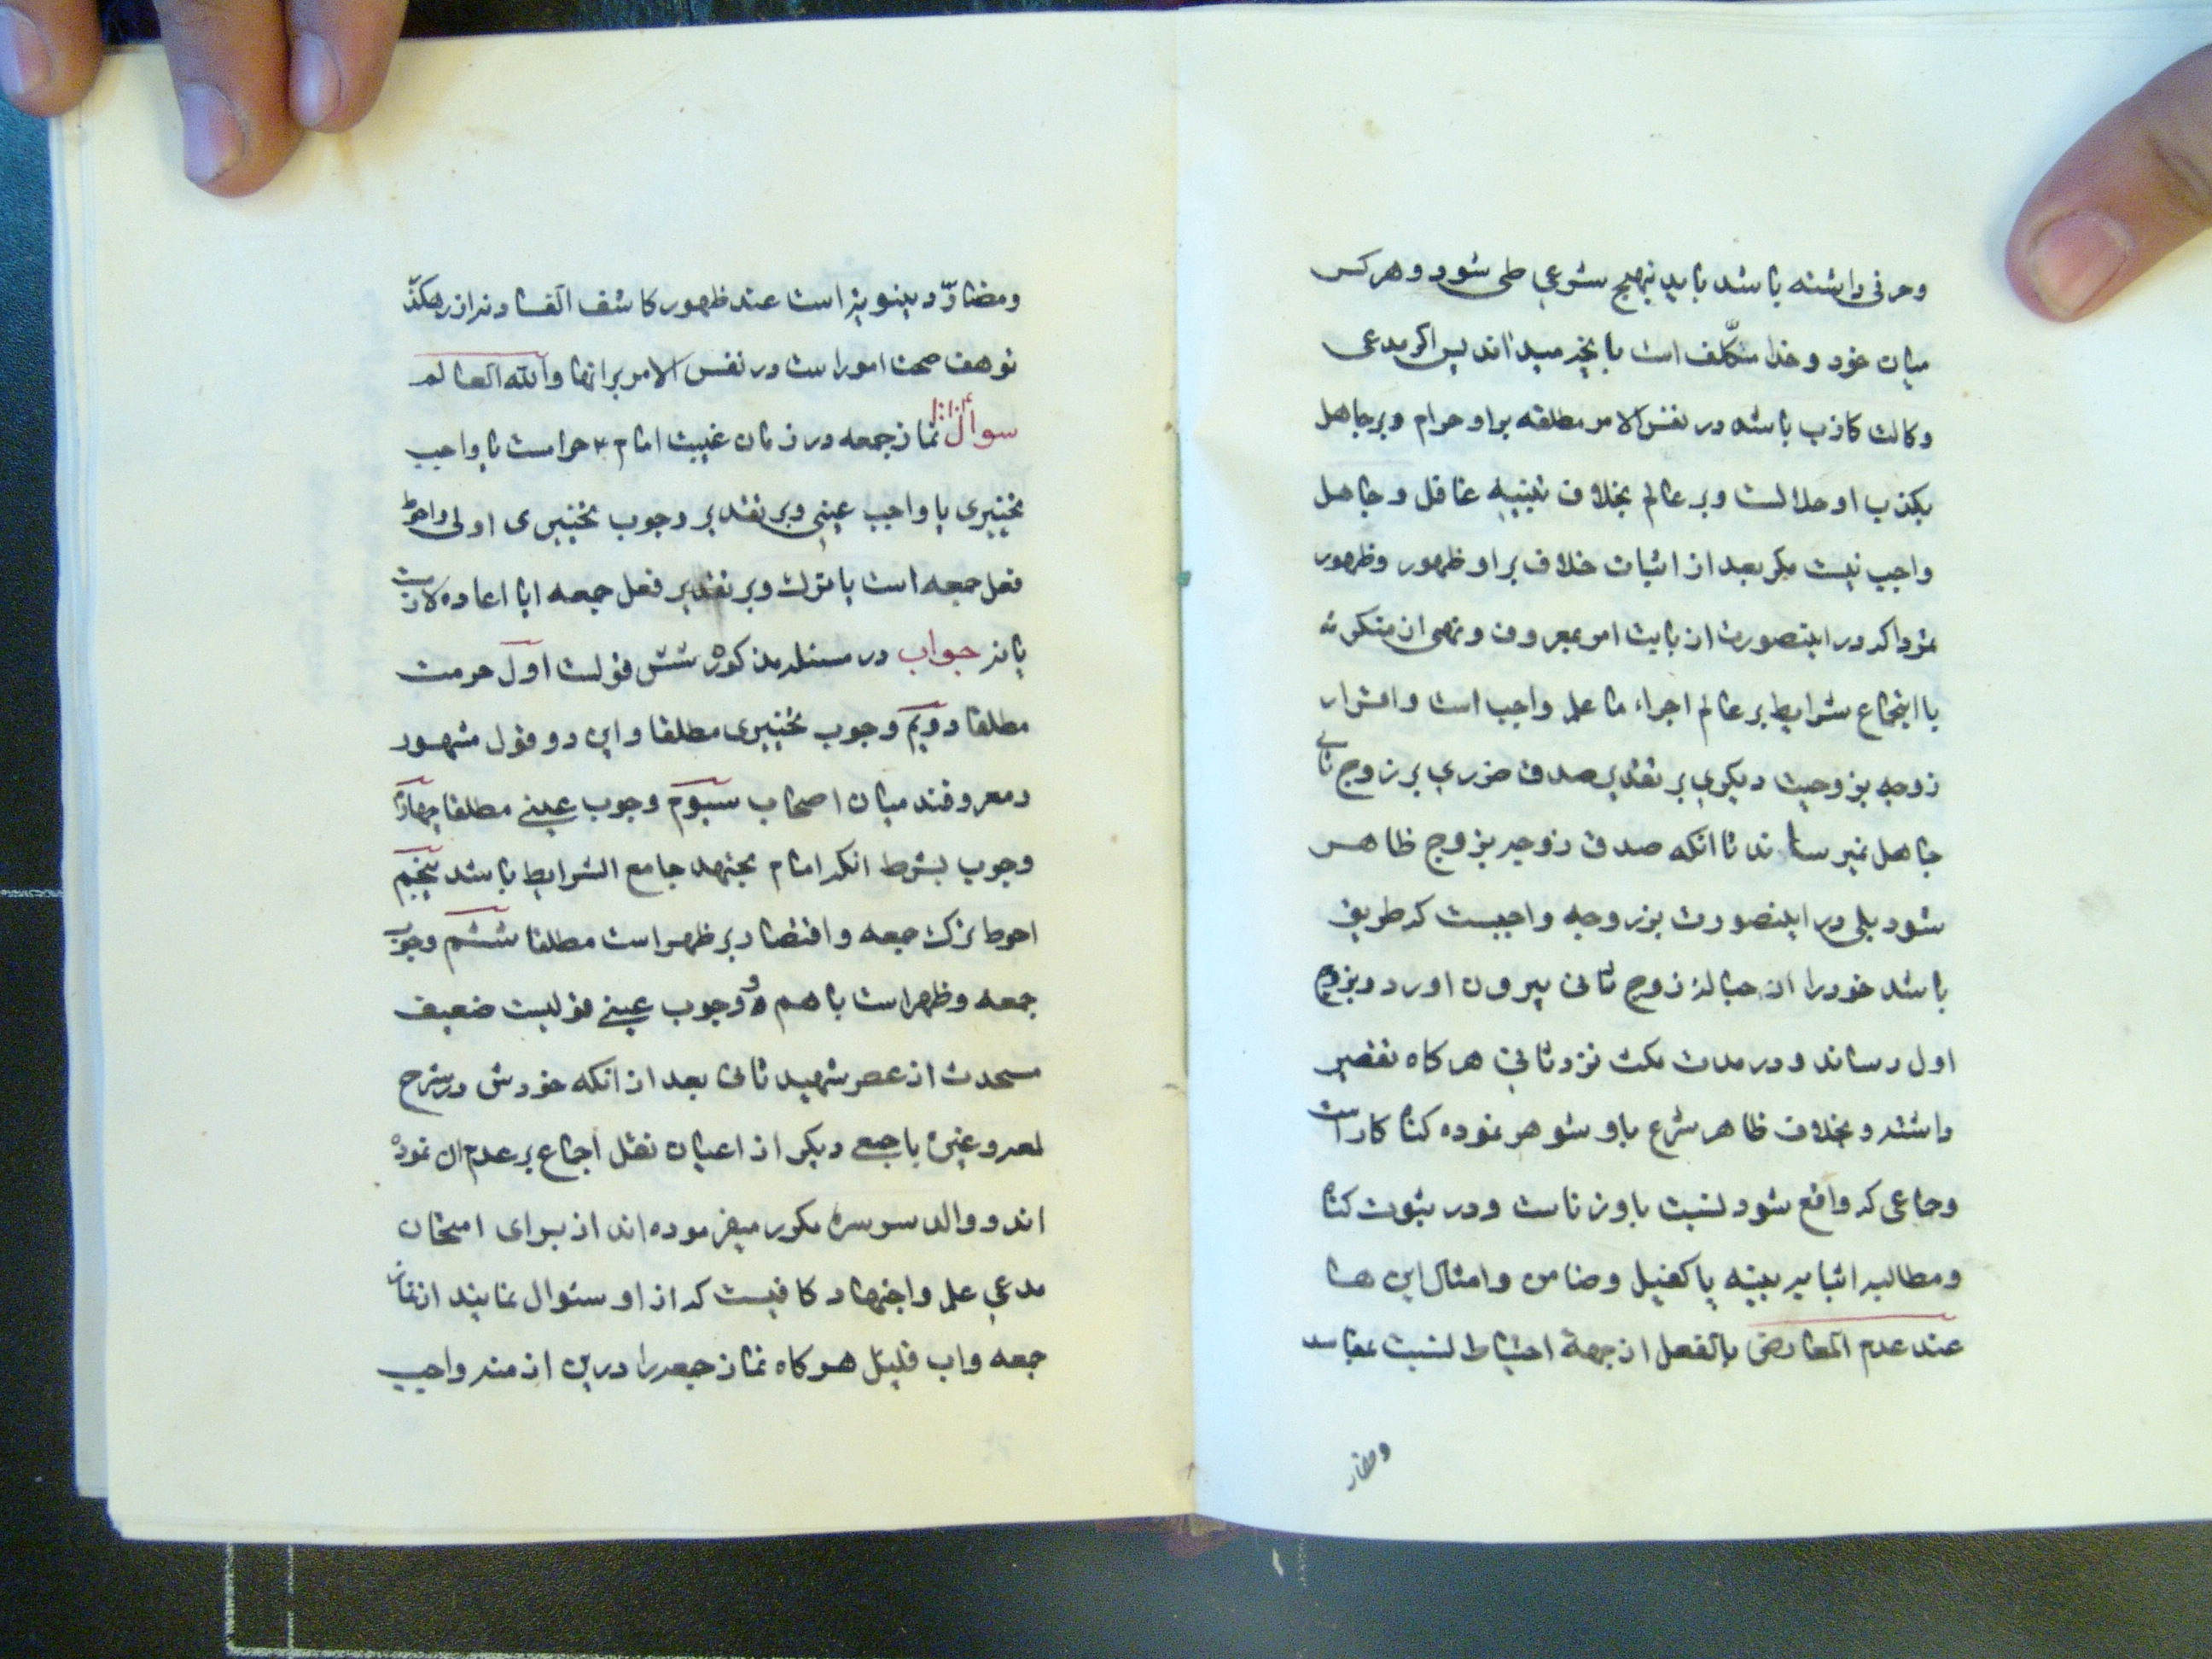 وحرفی داشته باشد باید بنهج شرعی طی شود و هر کس
میان خود و خدا مکلف است بانچه میداند پس اکر مدعی
وکالت کاذب باشد در نفس الامر مطلقه بر او حرام و بر جاهل
بکذب او حلالست و بر عالم بخلاف تنبیه غافل و جاهل
واجب نیست مکر بعد از اثبات خلاف بر او ظهور وظهور
نمود اکر در اینصورت از بابت امر بمعروف و نهی از منکر نه
با اجتماع شرایط بر عالم اجراء ما علم واجب است و اقرار
زوجه بزوجیت دیکری بر تقدیر صدق ضرری بر زوج ثانی
جاهل نمیرساند تا انکه صدق زوجه بزوج ظاهر
شود بلی در اینصورت بر زوجه واجبست که طریق
باشد خود را از حباله زوج ثانی بیرون اورد و بزوج
اول رساند و در مدت مکث نزد ثانی هر کاه تقصیر
داشته و بخلاف ظاهر شرع باو شوهر نموده کناه کار است
وجماعی که واقع شود نسبت باو زناست و در ثبوت کناه
ومطالبه اثبا بر بینه یا کفیل وضامن وامثال این ها
عند عدم المعارض بالفعل از جهة احتیاط نسبت بمفاسد
ومضار
ومضار دینویه است عند ظهور کاشف الفساد نه از رهکذر
توهف صحت امور است در نفس الامر بر انها والله العالم
سوال نماز جمعه در زمان غیبت امام ۴ حرامست یا واجب
تخییری یا واجب عینی و بر تقدیر وجوب تخییری اولی واحوط
فعل جمعه است یا ترک و بر تقدیر فعل جمعه ایا اعاده لازمست
یا نه جواب در مسئله مذکوره شش قولست اول حرمت
مطلقا دویم وجوب تخییری مطلقا و این دو قول مشهور
ومعروفند میان اصحاب سیوم وجوب عینی مطلقا چهارم
وجوب بشرط انکه امام مجتهد جامع الشرایط باشد پنجم
احوط ترک جمعه و اقتصار بر ظهر است مطلقا ششم وجوب
جمعه وظهر است با هم و وجوب عینی قولیست ضعیف
مستحدث از عصر شهید ثانی بعد از انکه خودش در شرح
لمعه وغیره با جمعی دیکر از اعیان نقل اجماع بر عدم ان نموده
اند و والد سو سره مکرر میفرموده اند از برای امتحان
مدعی علم واجتهاد کافیست که از او سئوال نمایند از نماز
جمعه واب قلیل هر کاه نماز جمعه را درین ازمنه واجب